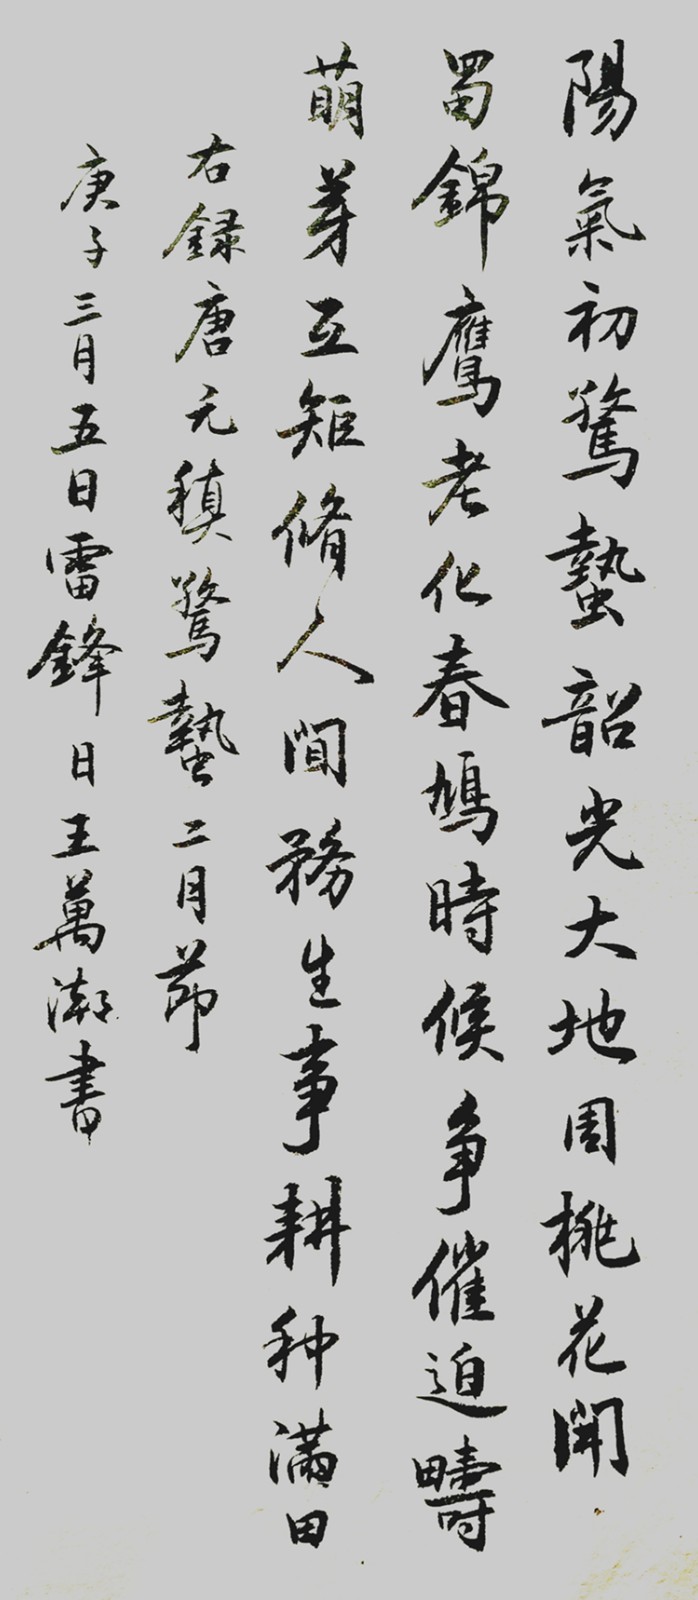 陽氣初驚蟄韶光大地周桃花開
蜀錦鷹老化春鳩時候爭催迫疇
萌芽互矩脩人間務生事耕种滿田
右録唐元稹驚蟄二月節
庚子三月五日雷鋒日王萬潮書